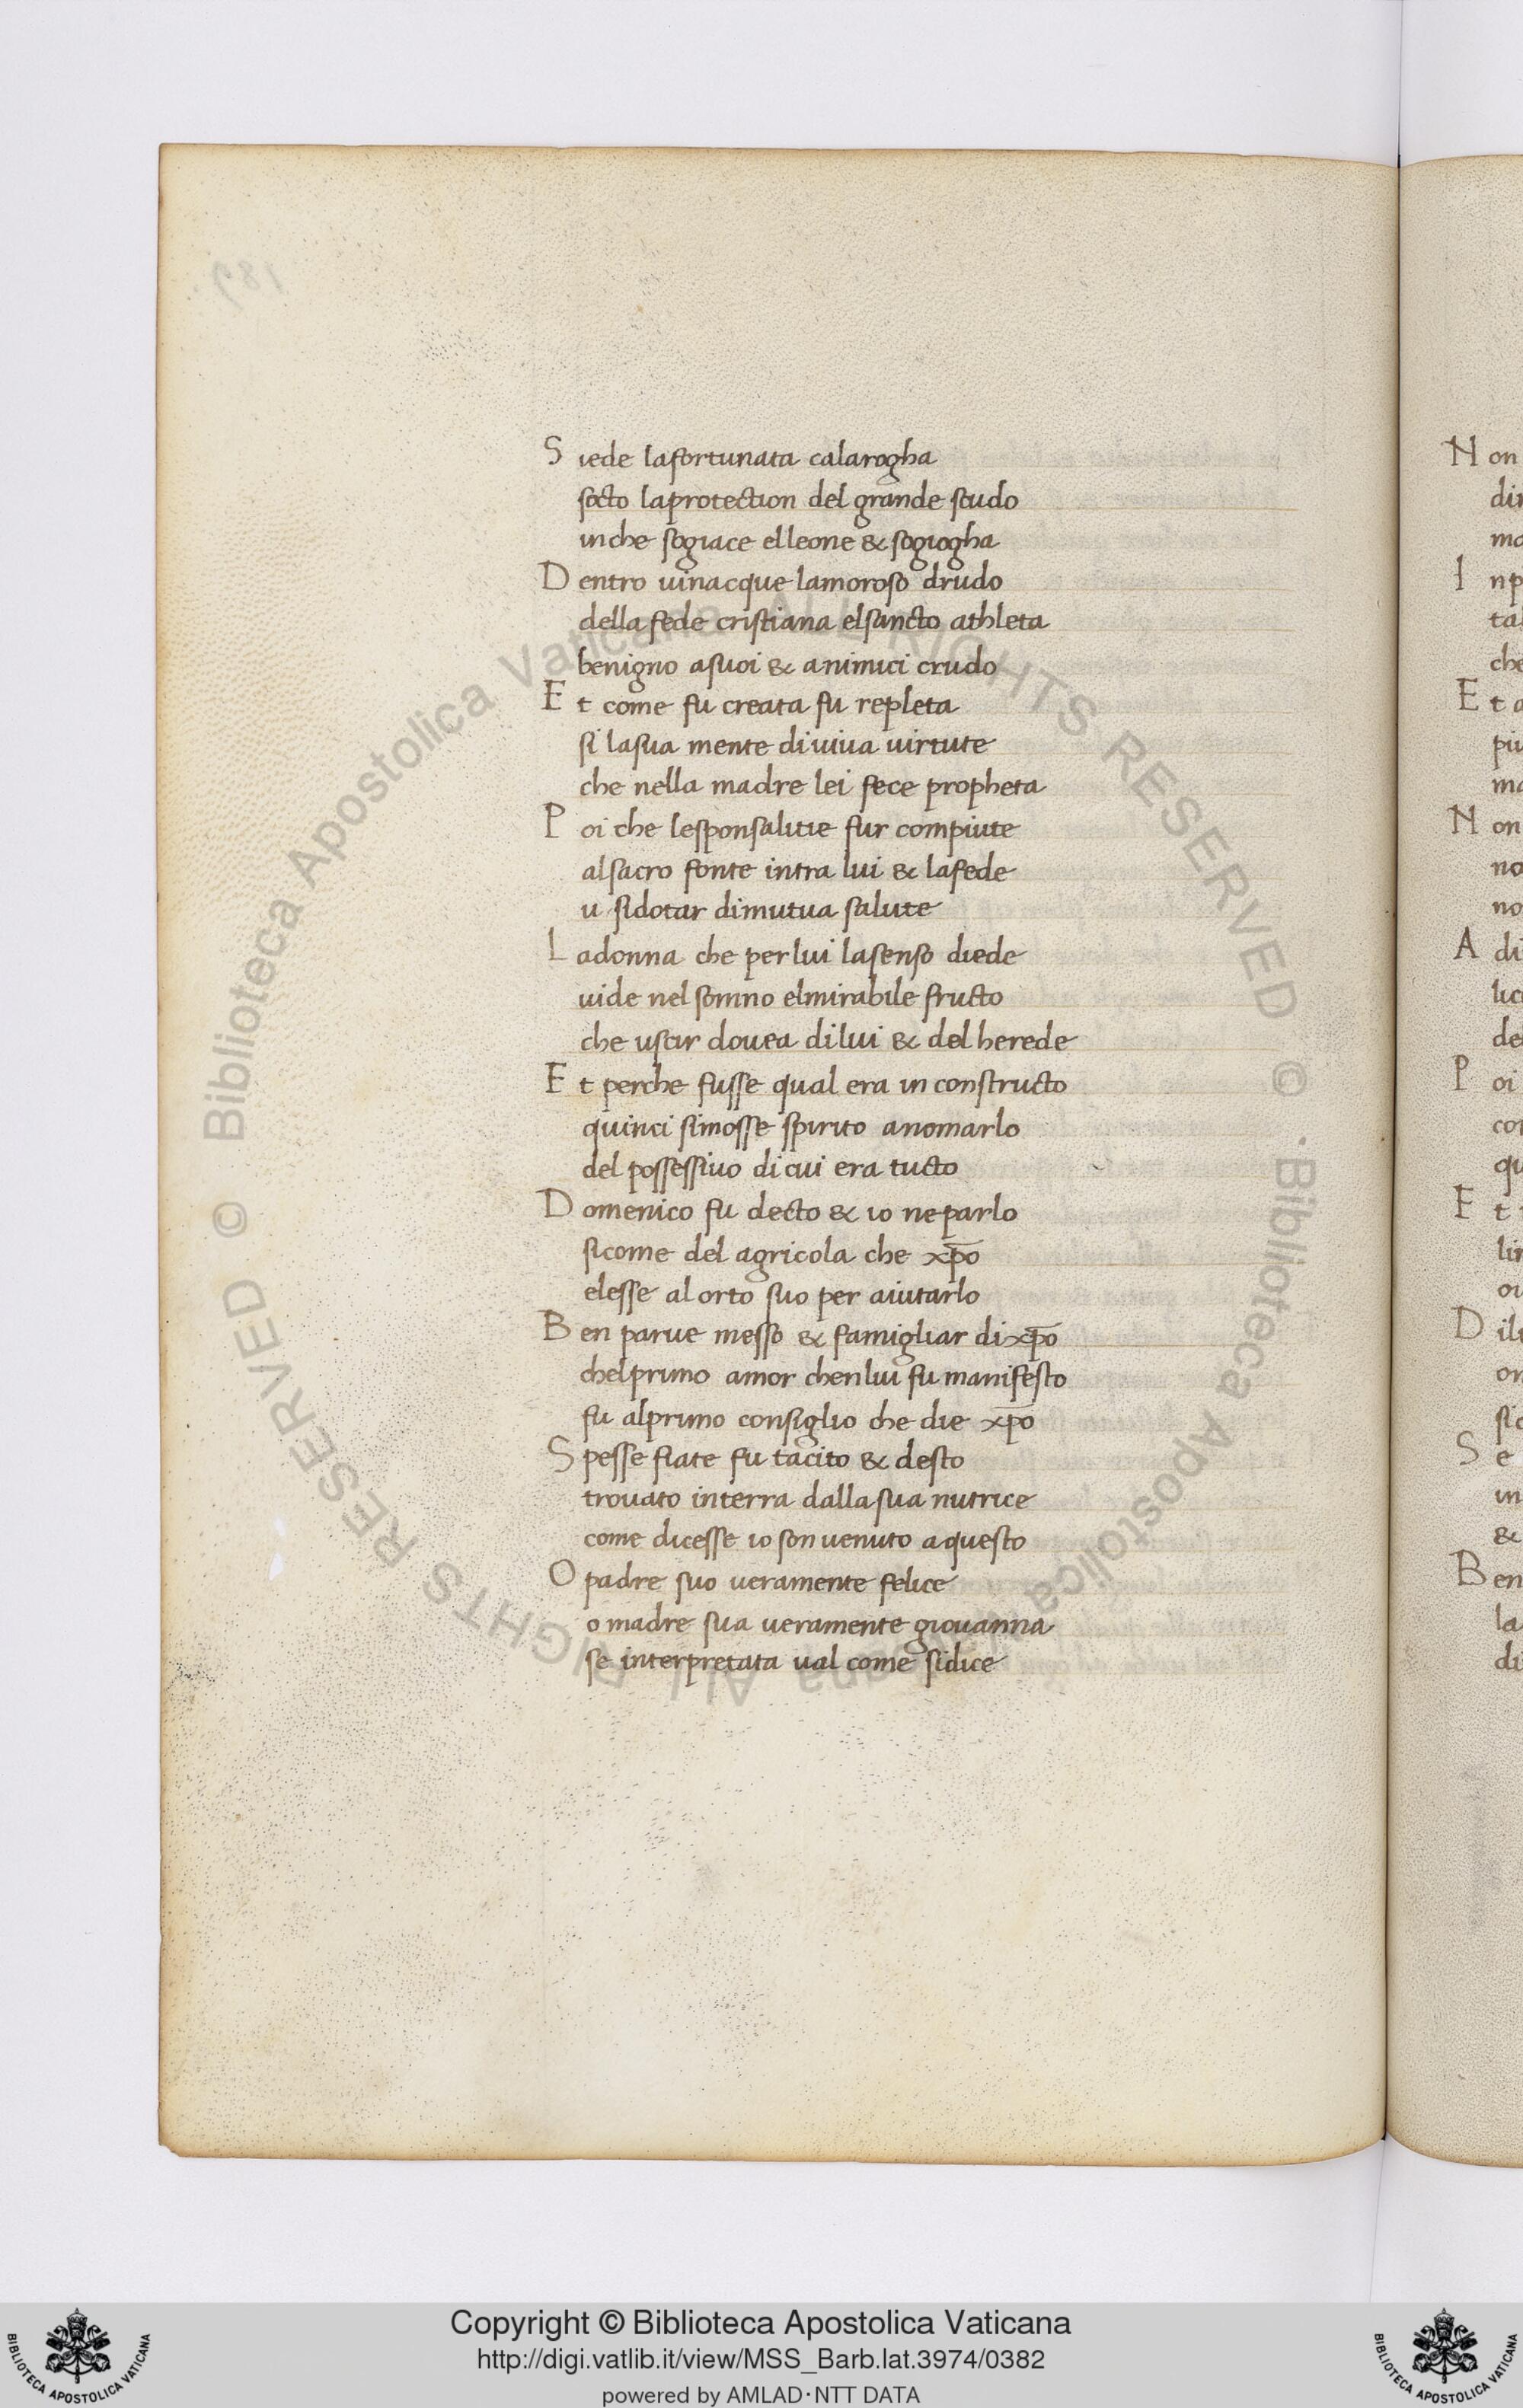 S iede lafortunata calarogha
socto laprotection del grande scudo
inche sogiace elleone & sogiogha
D entro uinacque lamoroso drudo
della fede cristiana elsancto athleta
benigno asuoi & animici crudo
E t come fu creata fu repleta
si lasua mente diuiua uirtute
che nella madre lei fece propheta
P oi che lesponsalitie fur compiute
alsacro fonte intra lui & lafede
u sidotar dimutua salute
L adonna che perlui lasenso diede
uide nel somno elmirabile fructo
che uscir douea dilui & del herede
E t perche fusse qual era in constructo
quinci simosse spirito anomarlo
del possessiuo dicui era tucto
D omenico fu decto & io neparlo
sicome del agricola che xp̄o
elesse alorto suo per aiutarlo
B en parue messo & famigliar dixp̄o
chelprimo amor chenlui fu manifesto
fu alprimo consiglio che die xp̄o
S pesse fiate fu tacito & desto
trouato interra dallasua nutrice
come dicesse io son uenuto aquesto
O padre suo ueramente felice
o madre sua ueramente giouanna
se interpretata ual come sidice
N on
I np
che
E t a
N on
no
no
A di
P oi
E t
D
S e
in
&
B en
la
Biblioteca Apostolica Vaticana ALL RIGHTS RESERVED © · Biblioteca Apostolica Vaticana ALL RIGHTS RESERVED ©
Copyright © Biblioteca Apostolica Vaticana
http://digi.vatlib.it/view/MSS_Barb.lat.3974/0382
powered by AMLAD·NTT DATA
BIBLIOTECA APOSTOLICA VATICANA
BIBLIOTECA APOSTOLICA VATICANA